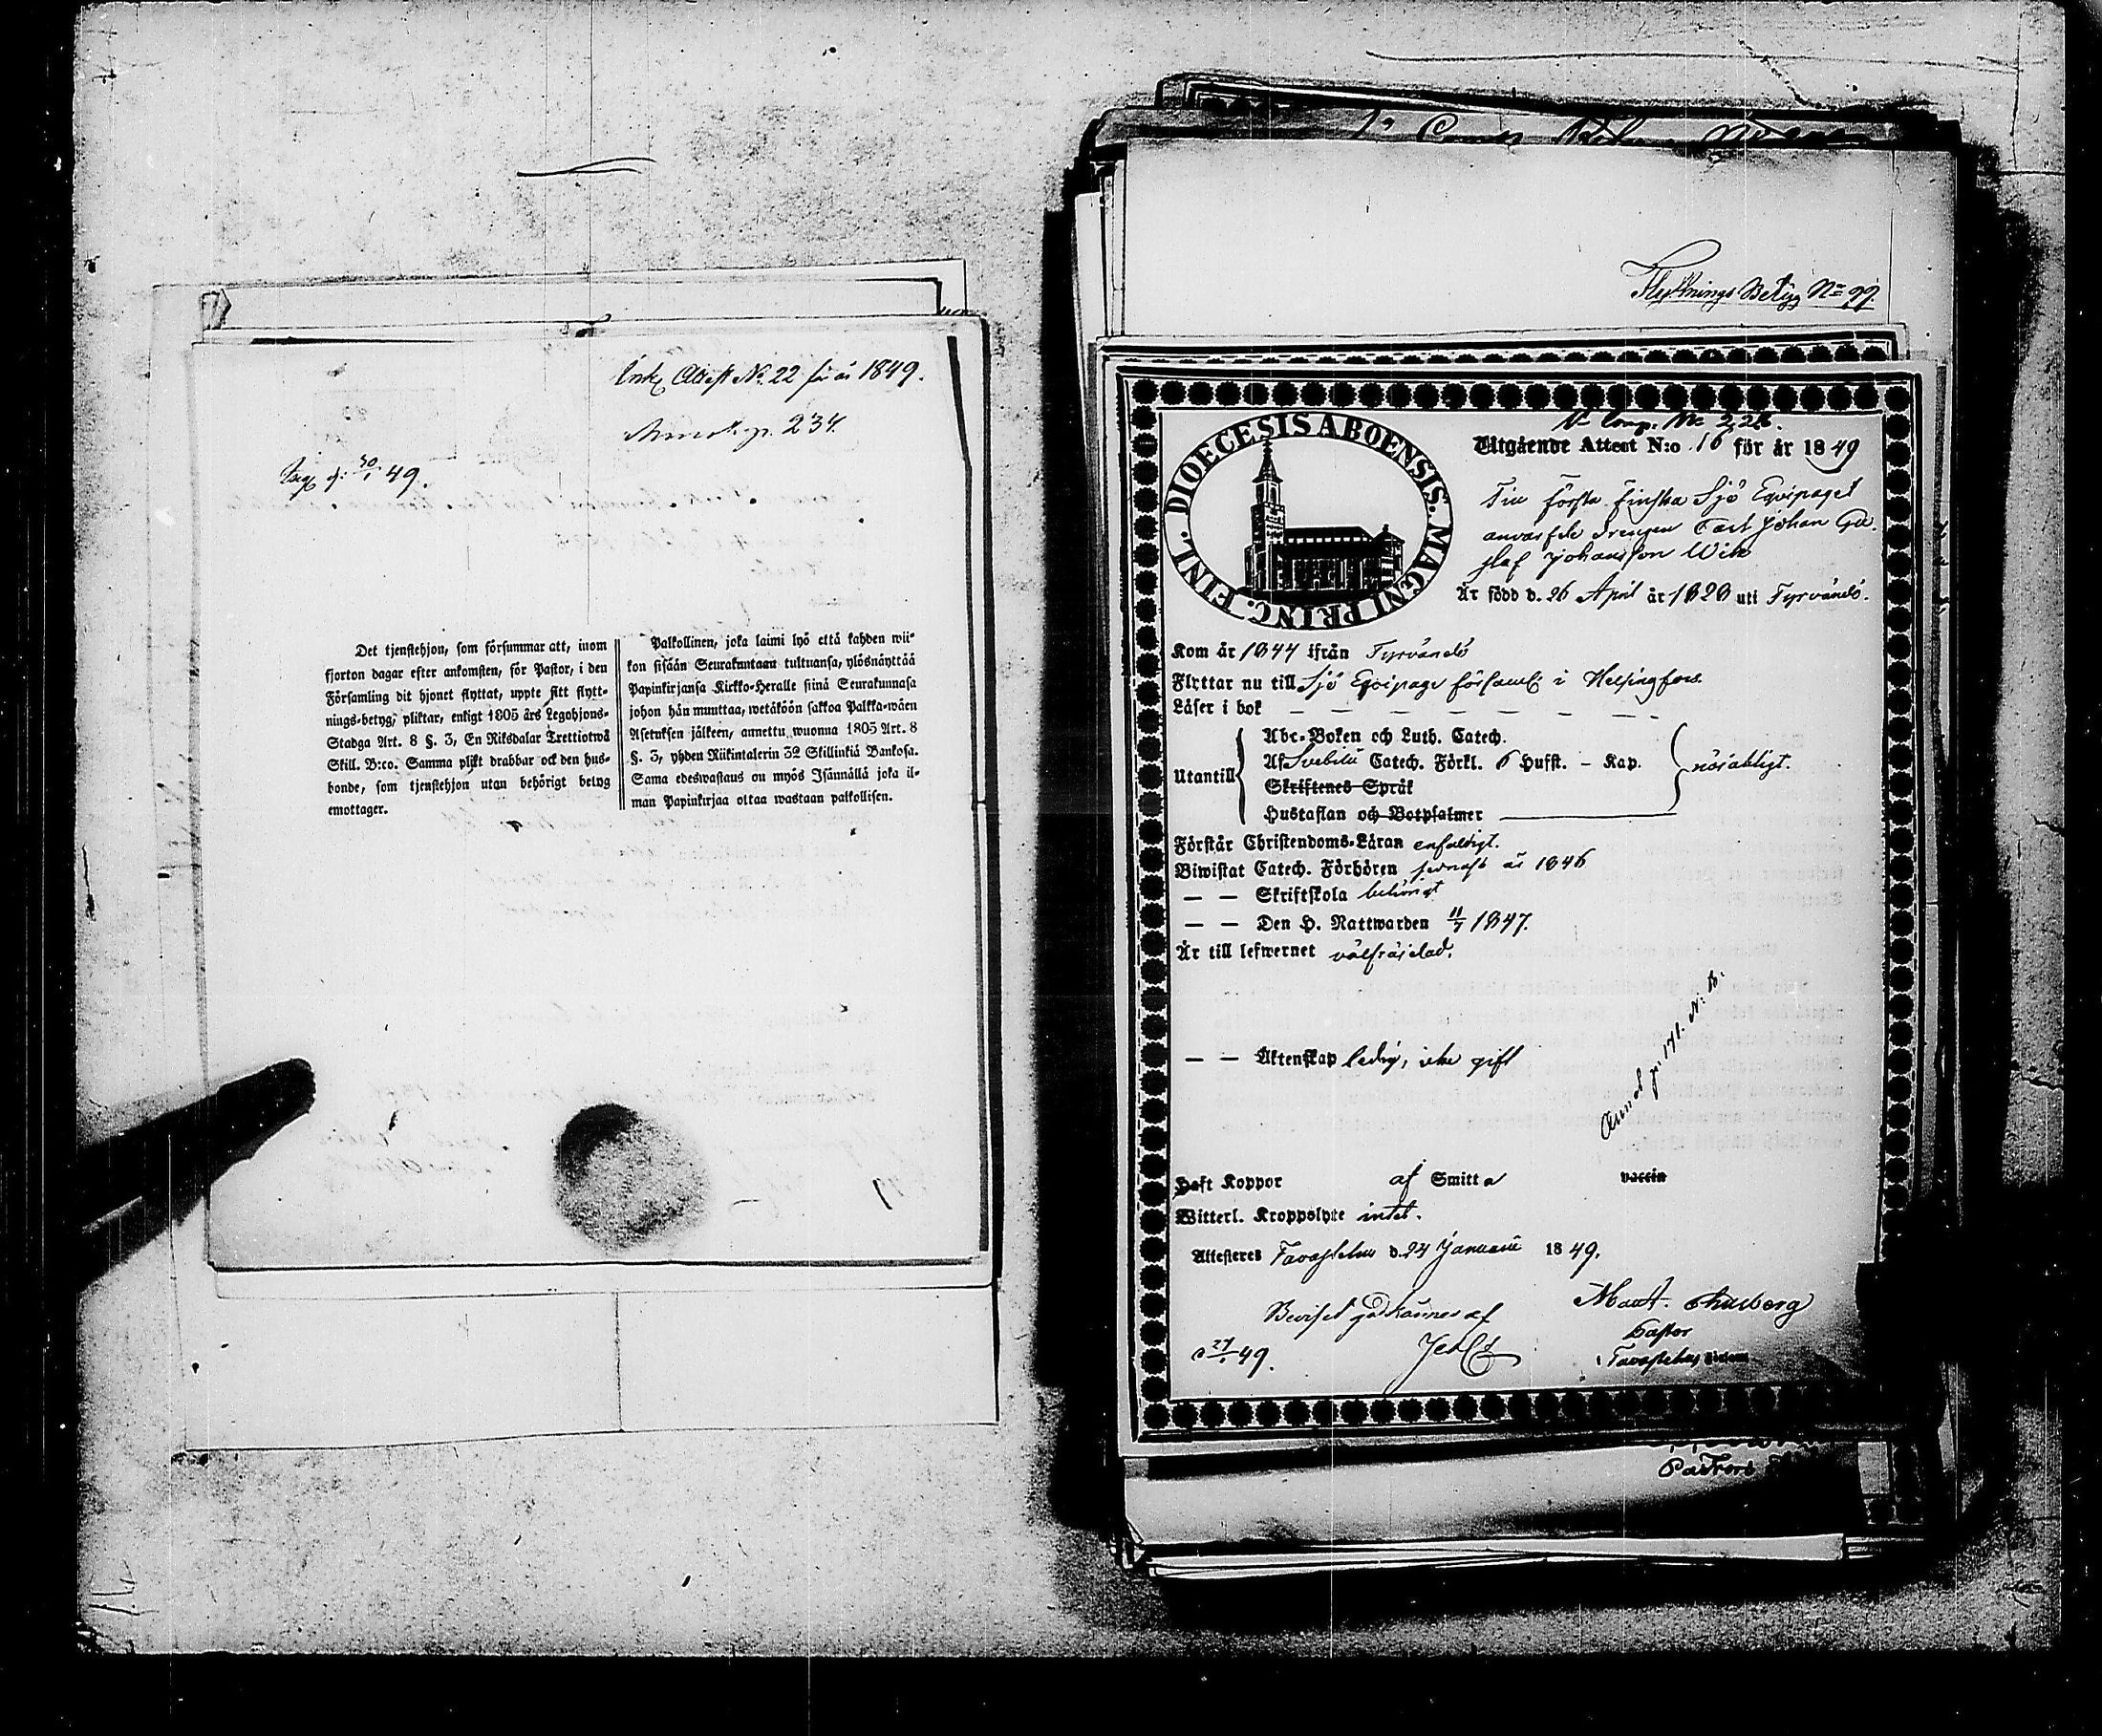 Attest No. 22 för år 1849.
p. 234.
d: 30/1 49.
Det tjenstehjon, som försummar att, inom
fjorton dagar efter ankomsten, för Pastor, i den
Församling dit hjonet flyttat, uppte sitt flytt-
nings-betyg, pliktar, enligt 1805 års Legohjons-
Stadga Art. 8 §. 3, En Riksdalar Trettiotwå
Skill. B:co. Samma plikt drabbar ock den hus-
bonde, som tjenstehjon utan behörigt betyg
emottager.
Palkollinen, joka laimi lyö että kahden wii-
kon sisään Seurakuntaan tultuansa, ylösnäyttää
Papinkirjansa Kirkko-Heralle siinä Seurakunnasa
johon hän muuttaa, wetäköön sakkoa Palkka-wäen
Asetuksen jälkeen, annettu wuonna 1805 Art. 8
§. 3, yhden Riikintalerin 32 Skillinkiä Bankosa.
Sama edeswastaus on myös Isännällä joka il-
man Papinkirjaa ottaa wastaan palkollisen.
Flyttnings Betyg No 99.
DIOECESIS ABOENSIS. MAGNI PRINC. FINL.
Utgående Attest N:o 16 för år 1849
Till första Finska Sjö Equipaget
anvärfde drengen Carl Johan Gu-
staf Johansson Wik
Är född d. 26 April år 1828 uti Tyrvändö.
Kom år 1844 ifrån Tyrvändö
Flyttar nu till Sjö Equipage församl i Helsingfors.
Läser i bok — — — — — — —
Utantill
Abc-Boken och Luth. Catech.
Af Svebilii Catech. Förkl. 6 Hufst. – Kap.
Skriftenes Språk
Hustaflan och Botpsalmer
nöjaktigt.
Förstår Christendoms-Läran enfaldigt.
Biwistat Catech. Förhören sednast år 1846
— — Skriftskola behörigt
— — Den H. Nattwarden 11/7 1847.
Är till lefwernet välfräjdad.
— — Äktenskap ledig, icke gift
p. 171. N: 18.
Haft Koppor af Smitta vaccin
Witterl. Kroppslyte intet.
Attesteres Tavastehus d. 24 Januarii 1849.
Beviset godkännes af
d 27/1 49.
Pastor
i Tavastehus
Pastors